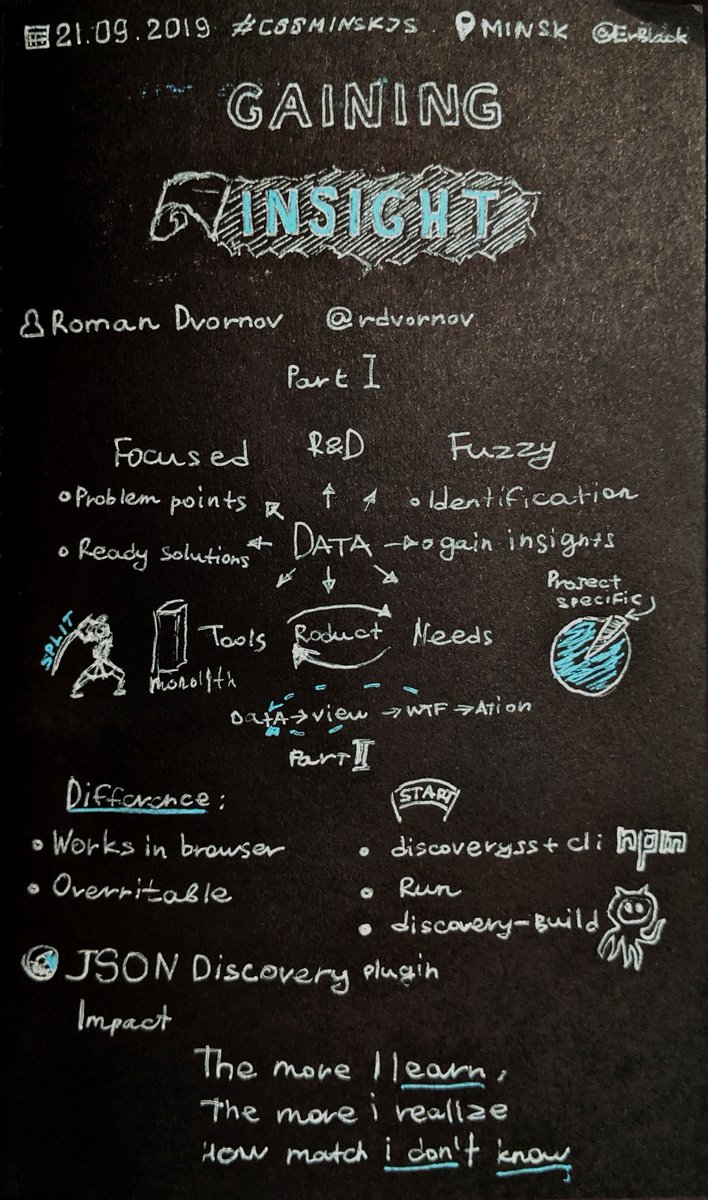 21.09.2019 #CSSMINSKJS MINSK @EvBlack
GAINING
INSIGHT
Roman Dvornov @rdvornov
Part I
Focused R&D Fuzzy
• Problem points • Identification
• Ready solutions DATA • gain insights
Project
specific
SPLIT
Tools Roduct Needs
monolyth
DatA → view → WTF → Ation
Part II
Difference: START
• Works in browser • discoveryjs + cli npm
• Overritable • Run
• discovery-Build
JSON Discovery plugin
Impact
The more I learn,
The more i realize
How match i don't know